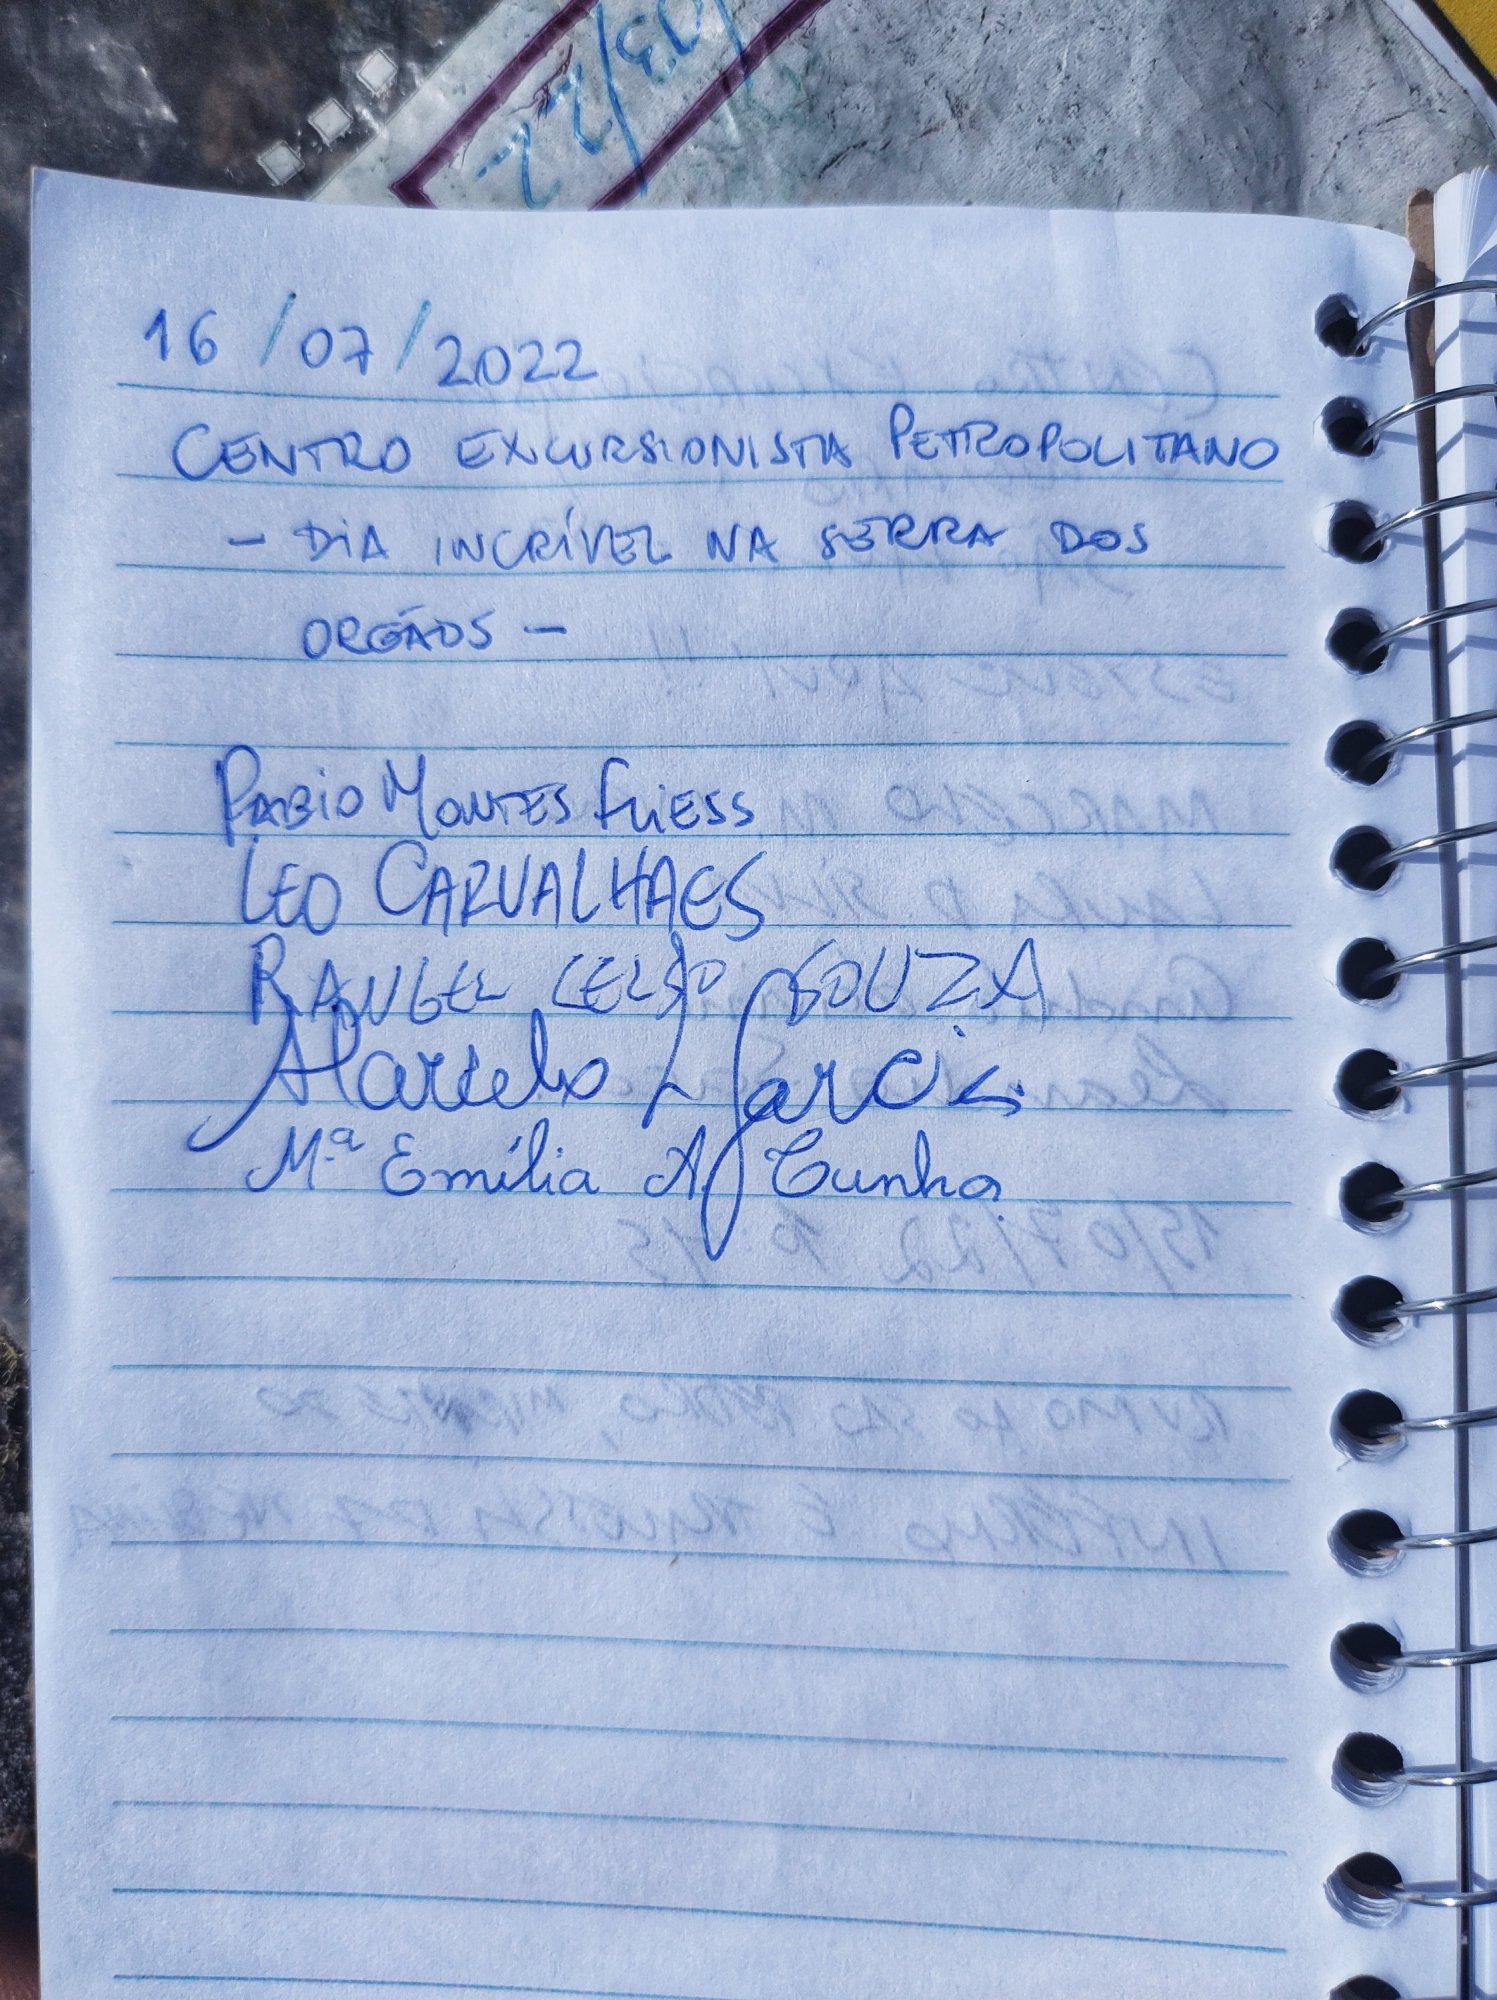 16/07/2022
CENTRO EXCURSIONISTA PETROPOLITANO
- DIA INCRÍVEL NA SERRA DOS
ORGÃOS -
FABIO MONTES FLIESS
LEO CARVALHAES
RANGEL CELSO SOUZA
Marcelo L Garcia
M.ª Emília A. Cunha